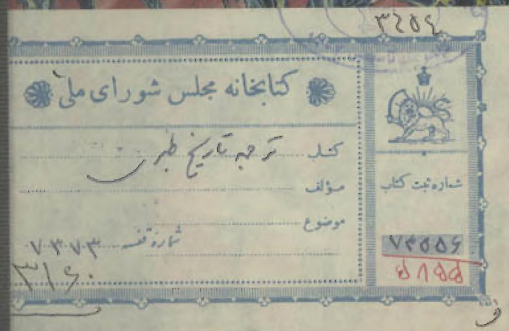 ۳۲۵۴
کتابخانه مجلس شورای ملی
کتاب ترجمه تاریخ طبری
مؤلف
موضوع
شماره قفسه ۷۳۷۳
۳۱۶۰
شماره ثبت کتاب
۷۴۵۵۶